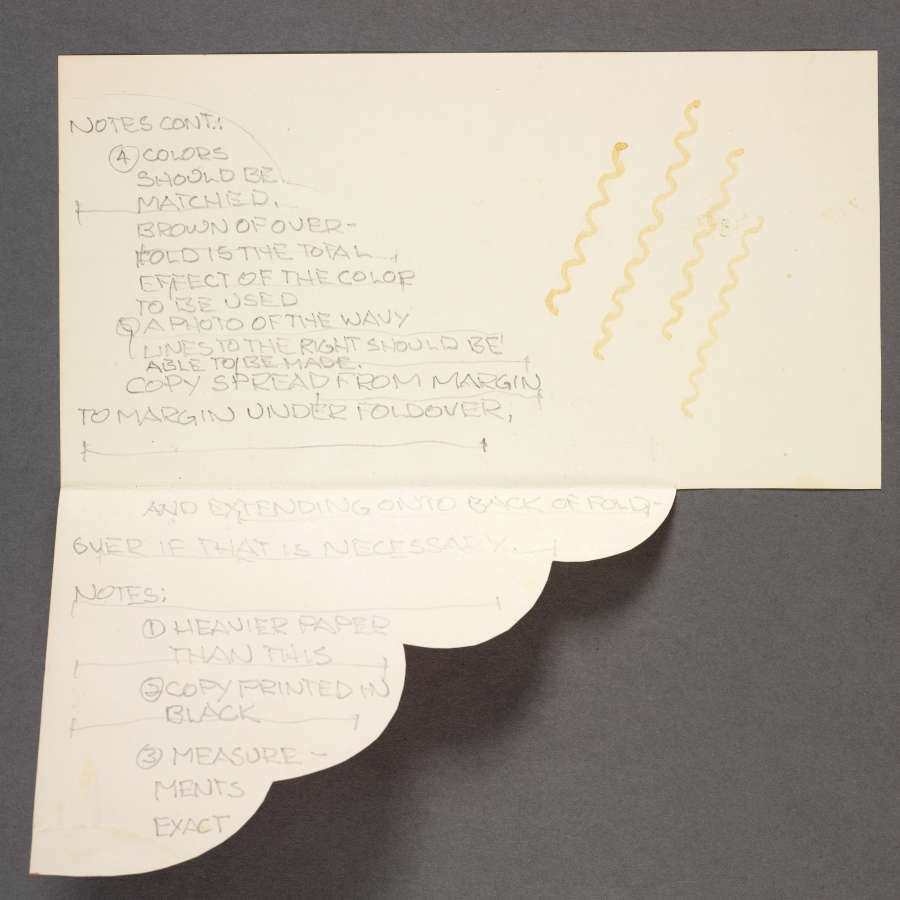 NOTES CONT.:
④ COLORS
SHOULD BE
MATCHED.
BROWN OF OVER-
FOLD IS THE TOTAL
EFFECT OF THE COLOR
TO BE USED
⑤ A PHOTO OF THE WAVY
LINES TO THE RIGHT SHOULD BE
ABLE TO BE MADE.
COPY SPREAD FROM MARGIN
TO MARGIN UNDER FOLDOVER,
AND EXTENDING ONTO BACK OF FOLD-
OVER IF THAT IS NECESSARY.
NOTES:
① HEAVIER PAPER
THAN THIS
② COPY PRINTED IN
BLACK
③ MEASURE-
MENTS
EXACT